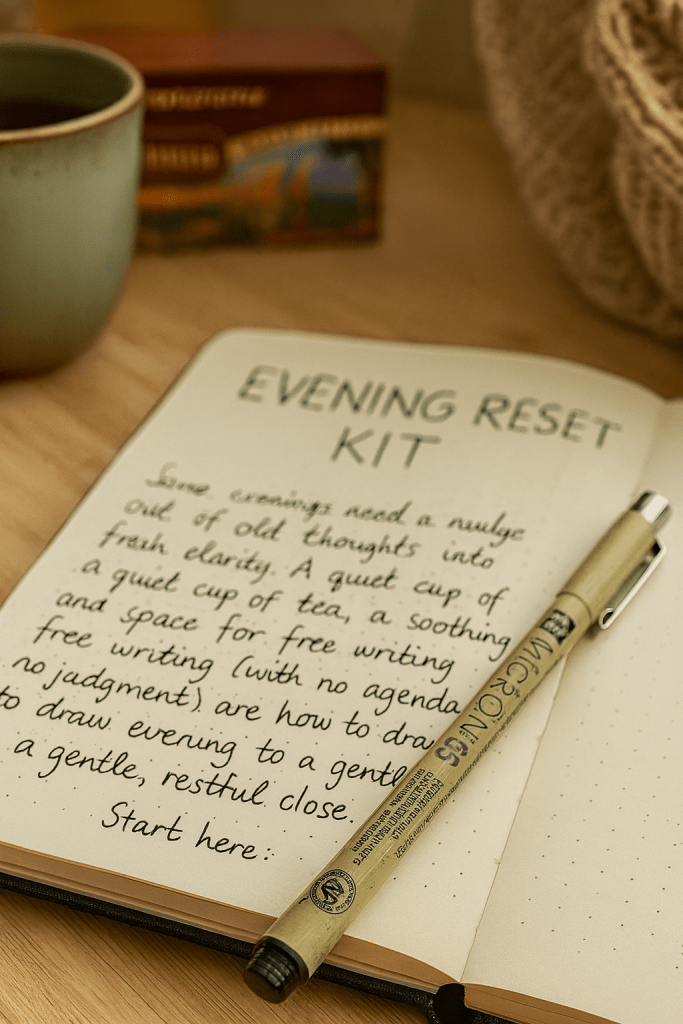 EVENING RESET
KIT
Some evenings need a nudge
out of old thoughts into
fresh clarity. A quiet cup of
a quiet cup of tea, a soothing
and space for free writing
free writing (with no agenda
no jadgment) are how to draw
to draw evening to a gentle
a gentle, restful close.
Start here:
MICRON
05